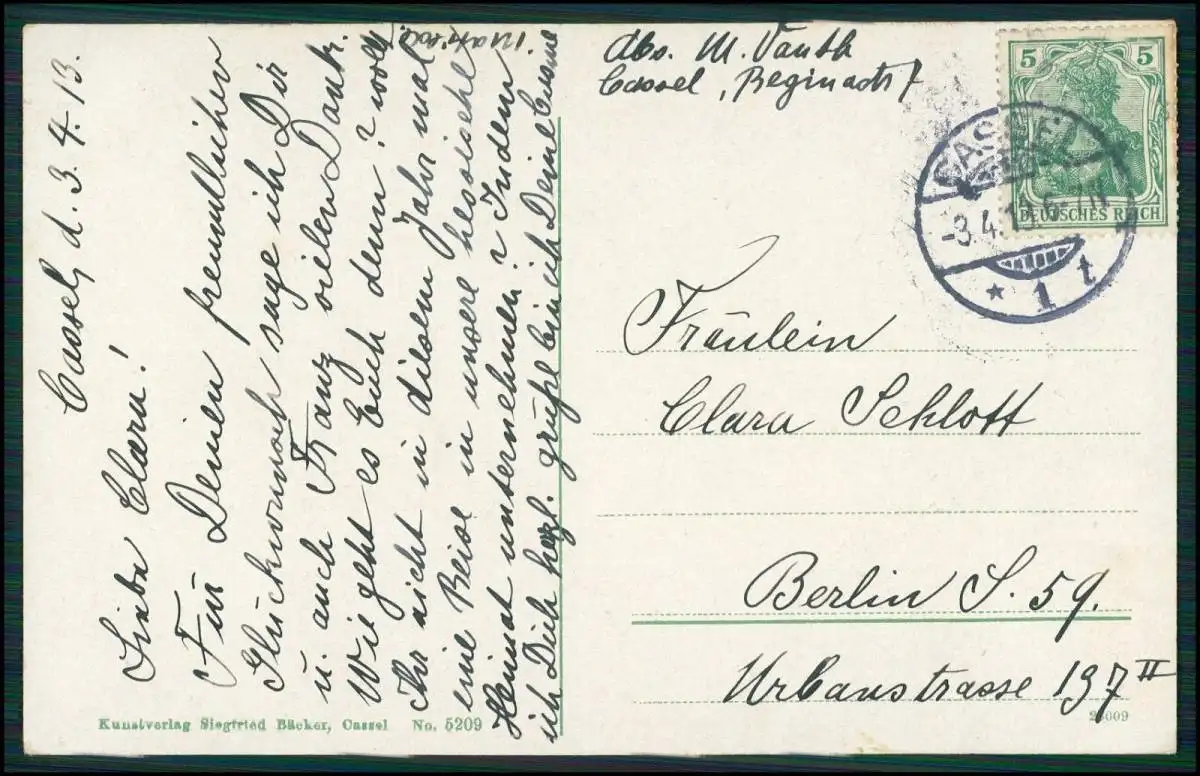 Cassel, d. 3. 4. 13.
Liebe Clara!
Für Deinen freundlichen
Glückwunsch sage ich Dir
u. auch Franz vielen Dank.
Wie geht es Euch denn? wollt
Ihr nicht in diesem Jahr mal
eine Reise in unsere hessische
Heimat unternehmen? Indem
ich Dich herzl. grüße bin ich Deine Cousine
Abs. M. Vauth
Cassel,
5 5
DEUTSCHES REICH
CASSEL
-3.4.13.6-7N
* 1 t
Fräulein
Clara Schlott
Berlin S. 59.
Urbanstrasse 137 II
Kunstverlag Siegfried Bäcker, Cassel No. 5209